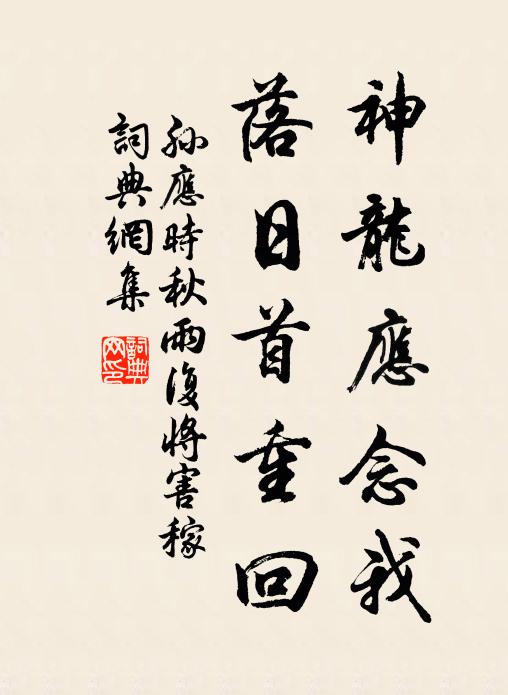 神龍應念我
落日首重回
孙應時秋雨復將害稼
詞典網集
詞典網印